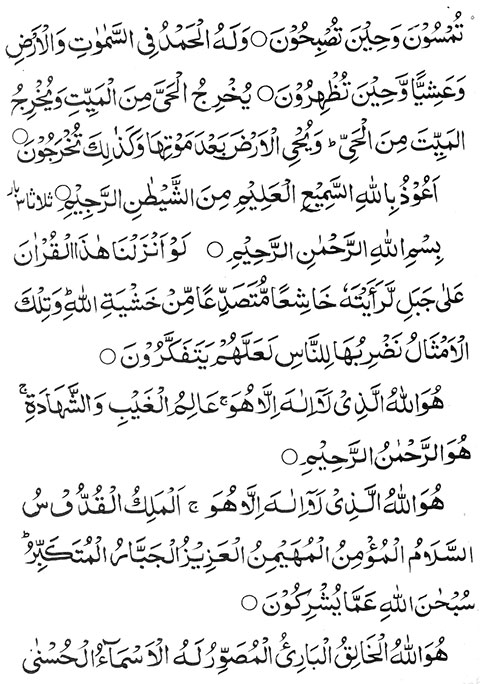 تُمْسُوْنَ وَحِيْنَ تُصْبِحُوْنَ ○ وَلَهُ الْحَمْدُ فِى السَّمٰوٰتِ وَالْاَرْضِ
وَعَشِيًّا وَّحِيْنَ تُظْهِرُوْنَ ○ يُخْرِجُ الْحَىَّ مِنَ الْمَيِّتِ وَيُخْرِجُ
الْمَيِّتَ مِنَ الْحَىِّ ؕ وَيُحْىِ الْاَرْضَ بَعْدَ مَوْتِهَا وَكَذٰلِكَ تُخْرَجُوْنَ ○
اَعُوْذُ بِاللهِ السَّمِيْعِ الْعَلِيْمِ مِنَ الشَّيْطٰنِ الرَّجِيْمِ ○ ثلاثا ٣ بار
بِسْمِ اللهِ الرَّحْمٰنِ الرَّحِيْمِ ○ لَوْ اَنْزَلْنَا هٰذَا الْقُرْاٰنَ
عَلٰى جَبَلٍ لَّرَاَيْتَهٗ خَاشِعًا مُّتَصَدِّعًا مِّنْ خَشْيَةِ اللهِ ؕ وَتِلْكَ
الْاَمْثَالُ نَضْرِبُهَا لِلنَّاسِ لَعَلَّهُمْ يَتَفَكَّرُوْنَ ○
هُوَ اللهُ الَّذِىْ لَآ اِلٰهَ اِلَّا هُوَ ۚ عَالِمُ الْغَيْبِ وَالشَّهَادَةِ ۚ
هُوَ الرَّحْمٰنُ الرَّحِيْمِ ○
هُوَ اللهُ الَّذِىْ لَآ اِلٰهَ اِلَّا هُوَ ۚ اَلْمَلِكُ الْقُدُّوْسُ
السَّلَامُ الْمُؤْمِنُ الْمُهَيْمِنُ الْعَزِيْزُ الْجَبَّارُ الْمُتَكَبِّرُ ؕ
سُبْحٰنَ اللهِ عَمَّا يُشْرِكُوْنَ ○
هُوَ اللهُ الْخَالِقُ الْبَارِئُ الْمُصَوِّرُ لَهُ الْاَسْمَآءُ الْحُسْنٰى